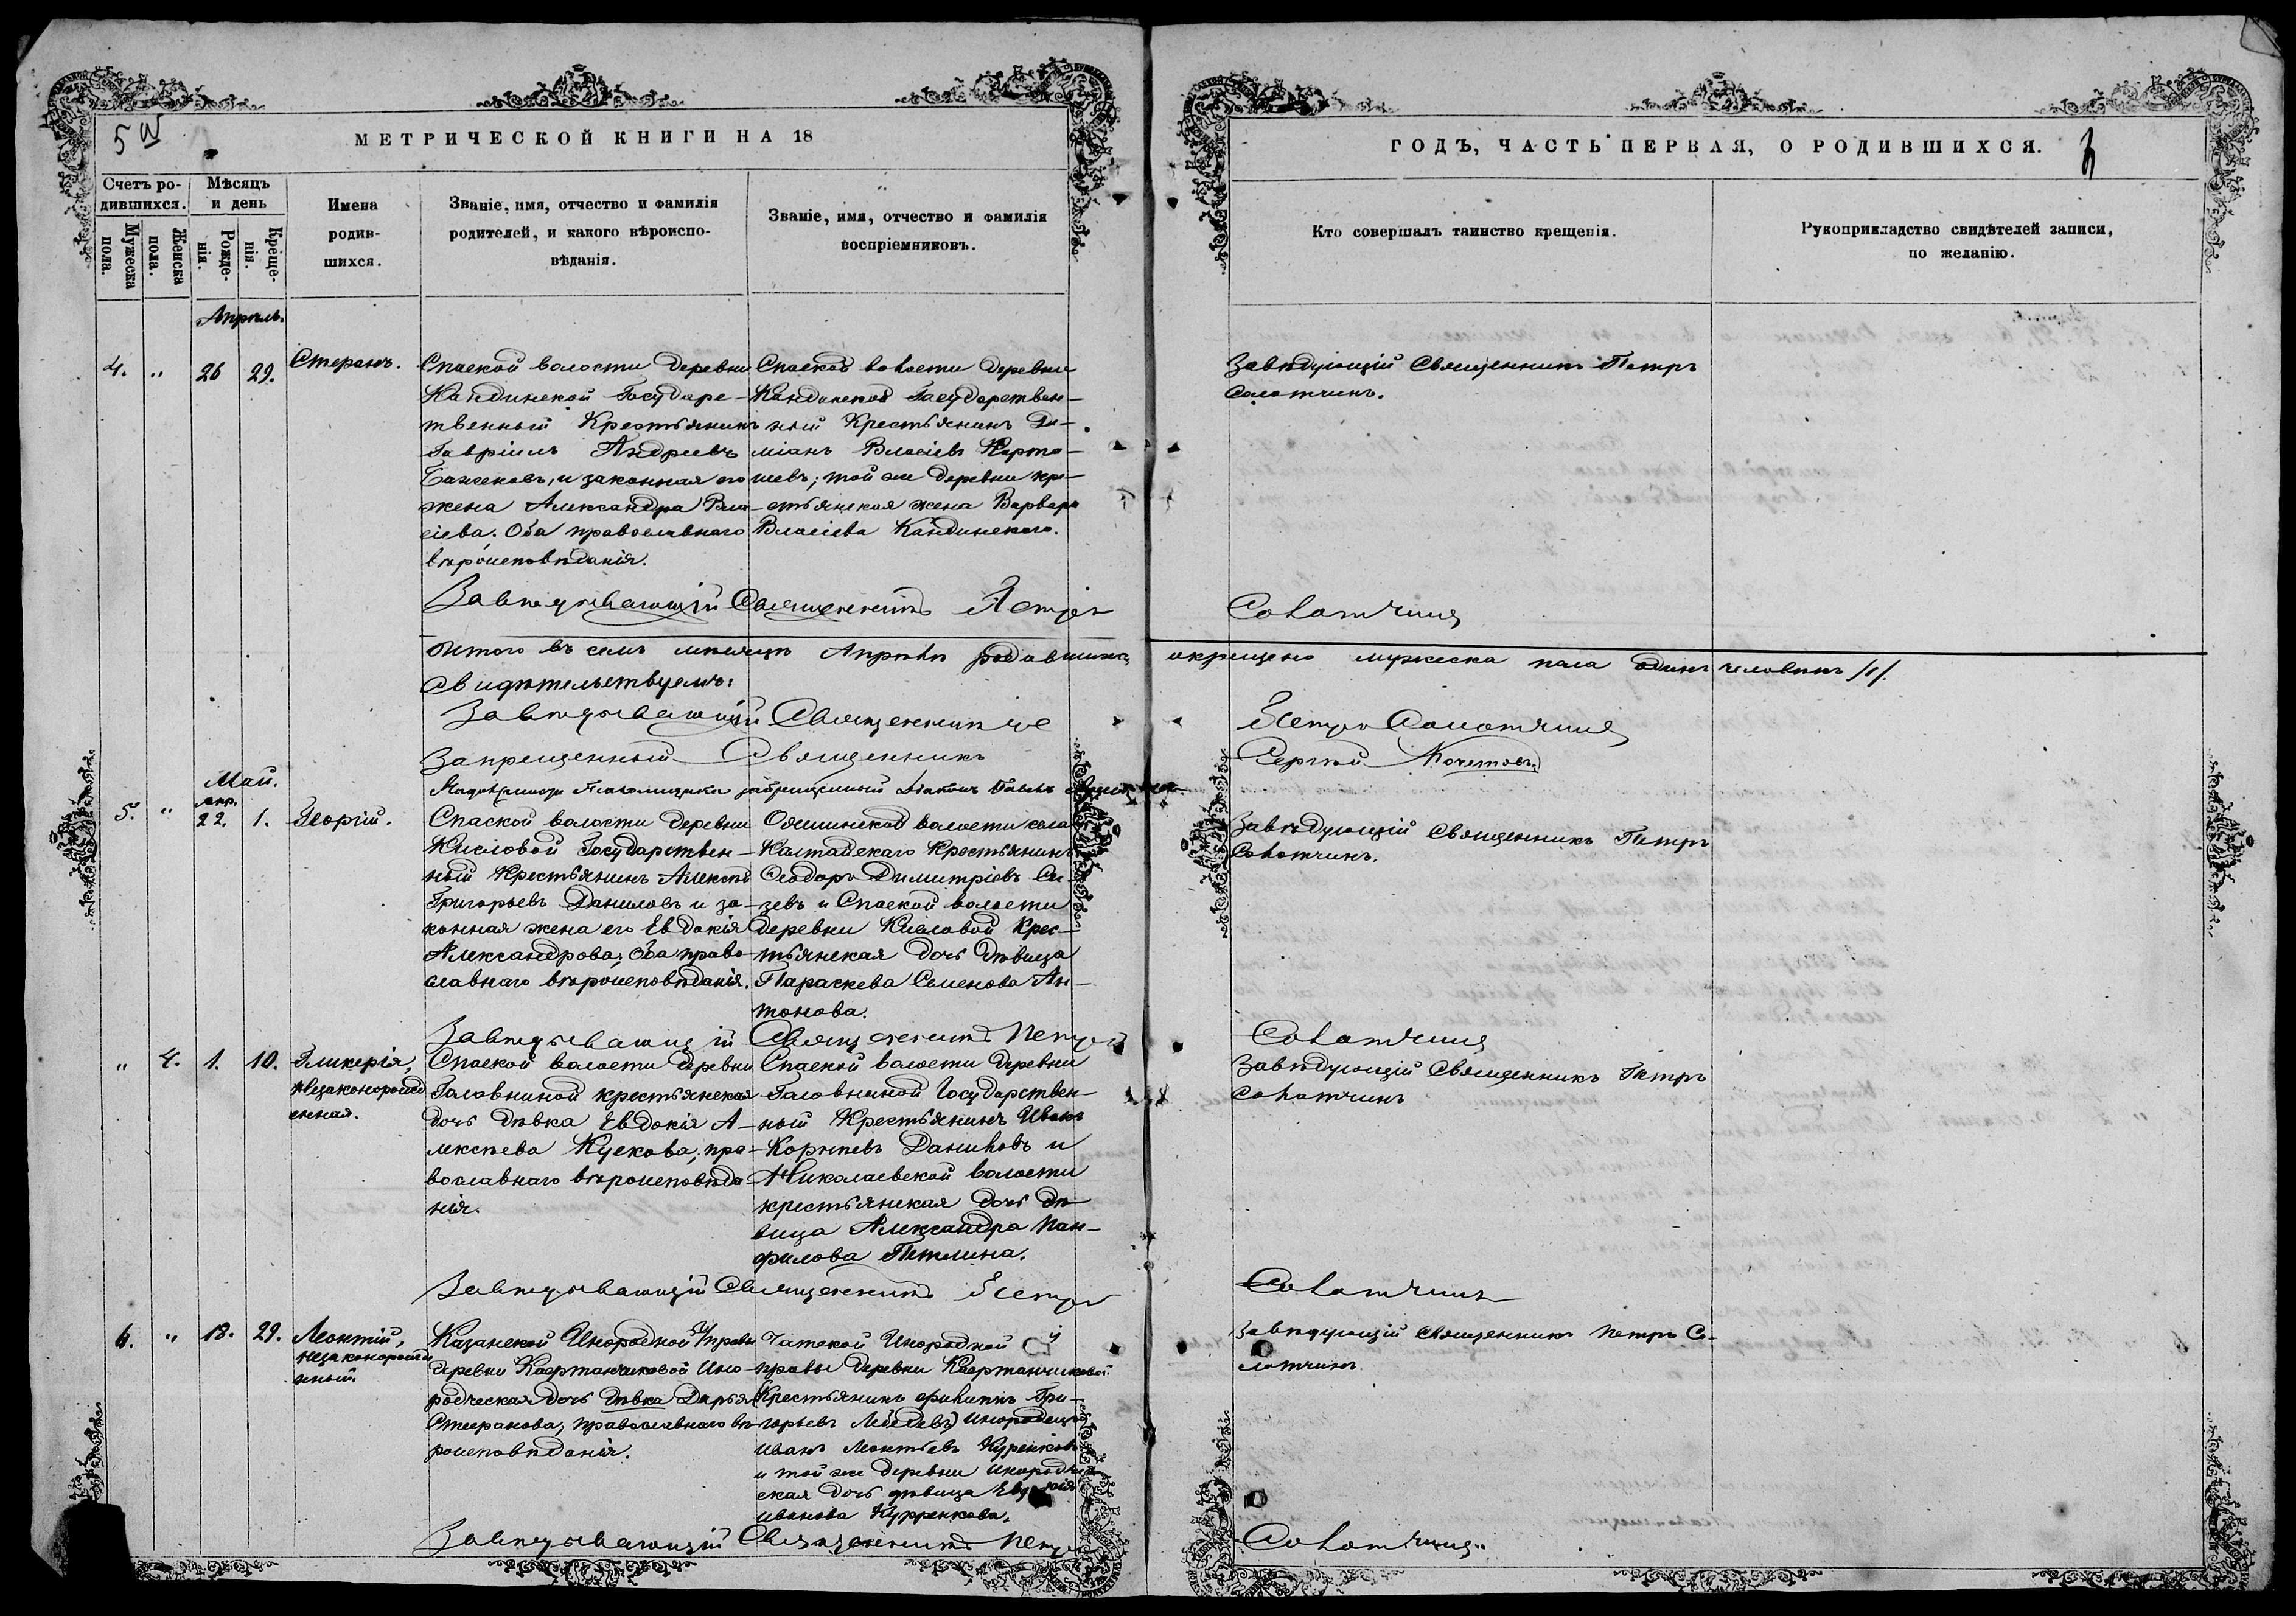 МЕТРИЧЕСКОЙ КНИГИ НА 18
ГОДЪ, ЧАСТЬ ПЕРВАЯ, О РОДИВШИХСЯ.
Счетъ ро-
дившихся.
Мужеска
пола.
Женска
пола.
Мѣсяцъ
и день
Рожде-
нія.
Креще-
нія.
Имена
родив-
шихся.
Званіе, имя, отчество и фамилія
родителей, и какого вѣроиспо-
вѣданія.
Званіе, имя, отчество и фамилія
воспріемниковъ.
Кто совершалъ таинство крещенія.
Рукоприкладство свидѣтелей записи,
по желанію.
Апрѣль.
4. " 26 29.
Стефанъ.
Спаской волости деревни
Кандинской Государс-
твенный Крестьянинъ
Гавріилъ Андреевъ
Баженовъ, и законная его
жена Александра Вла-
сіева. Оба православнаго
вѣроисповѣданія.
Спаской волости деревни
Кандинской Государствен-
ный Крестьянинъ Да-
міанъ Власіевъ Карта-
шевъ; той же деревни кре-
стьянская жена Варвара
Власіева Кандинскаго.
Завѣдующій Священникъ Петръ
Солотчинъ.
Завѣдывающій Священникъ Петръ Солотчинъ
Итого въ семъ мѣсяцѣ Апрѣлѣ родившихся окрещено мужеска пола одинъ человѣкъ /1/.
Свидѣтельствуемъ:
Завѣдывающій Священникъ Петръ Солотчинъ
Запрещенный Священникъ Сергѣй
Май.
5. " Апр. 22. 1.
Георгій.
Спаской волости деревни
Кисловой Государствен-
ный Крестьянинъ Алексѣй
Григорьевъ Даниловъ и за-
конная жена его Евдокія
Александрова; Оба право-
славнаго вѣроисповѣданія.
волости села
Калтайскаго Крестьянинъ
Феодоръ Димитріевъ Си-
зевъ и Спаской волости
деревни Кисловой Крес-
тьянская дочь дѣвица
Параскева Семенова Ан-
тонова.
Завѣдующій Священникъ Петръ
Солотчинъ.
Завѣдывающій Священникъ Петръ Солотчинъ
" 4. 1. 10.
Гликерія,
незаконорожд
енная.
Спаской волости деревни
Головниной крестьянская
дочь дѣвка Евдокія А-
лексѣева Кускова; пра-
вославнаго вѣроисповѣда-
нія.
Спаской волости деревни
Головниной Государствен-
ный Крестьянинъ Иванъ
Корнѣевъ Даниловъ и
Николаевской волости
крестьянская дочь дѣ-
вица Александра Пан-
филова Петлина.
Завѣдующій Священникъ Петръ
Солотчинъ
Завѣдывающій Священникъ Петръ Солотчинъ
6. " 18. 29.
Леонтій,
незаконорожде
нный.
Казанской Инородной Управы
деревни Кафтанчиковой Ино-
родческая дочь дѣвка Дарья
Стефанова, православнаго вѣ-
роисповѣданія.
Чатской Инородной У
правы деревни Кафтанчиковой
Крестьянинъ Филипъ Гри-
горьевъ Инородецъ
Иванъ Леонтьевъ Куренковъ
и той же деревни инородче
ская дочь дѣвица
Иванова Курренкова.
Завѣдующій Священникъ Петръ Со-
лотчинъ
Завѣдывающій Священникъ Петръ Солотчинъ.